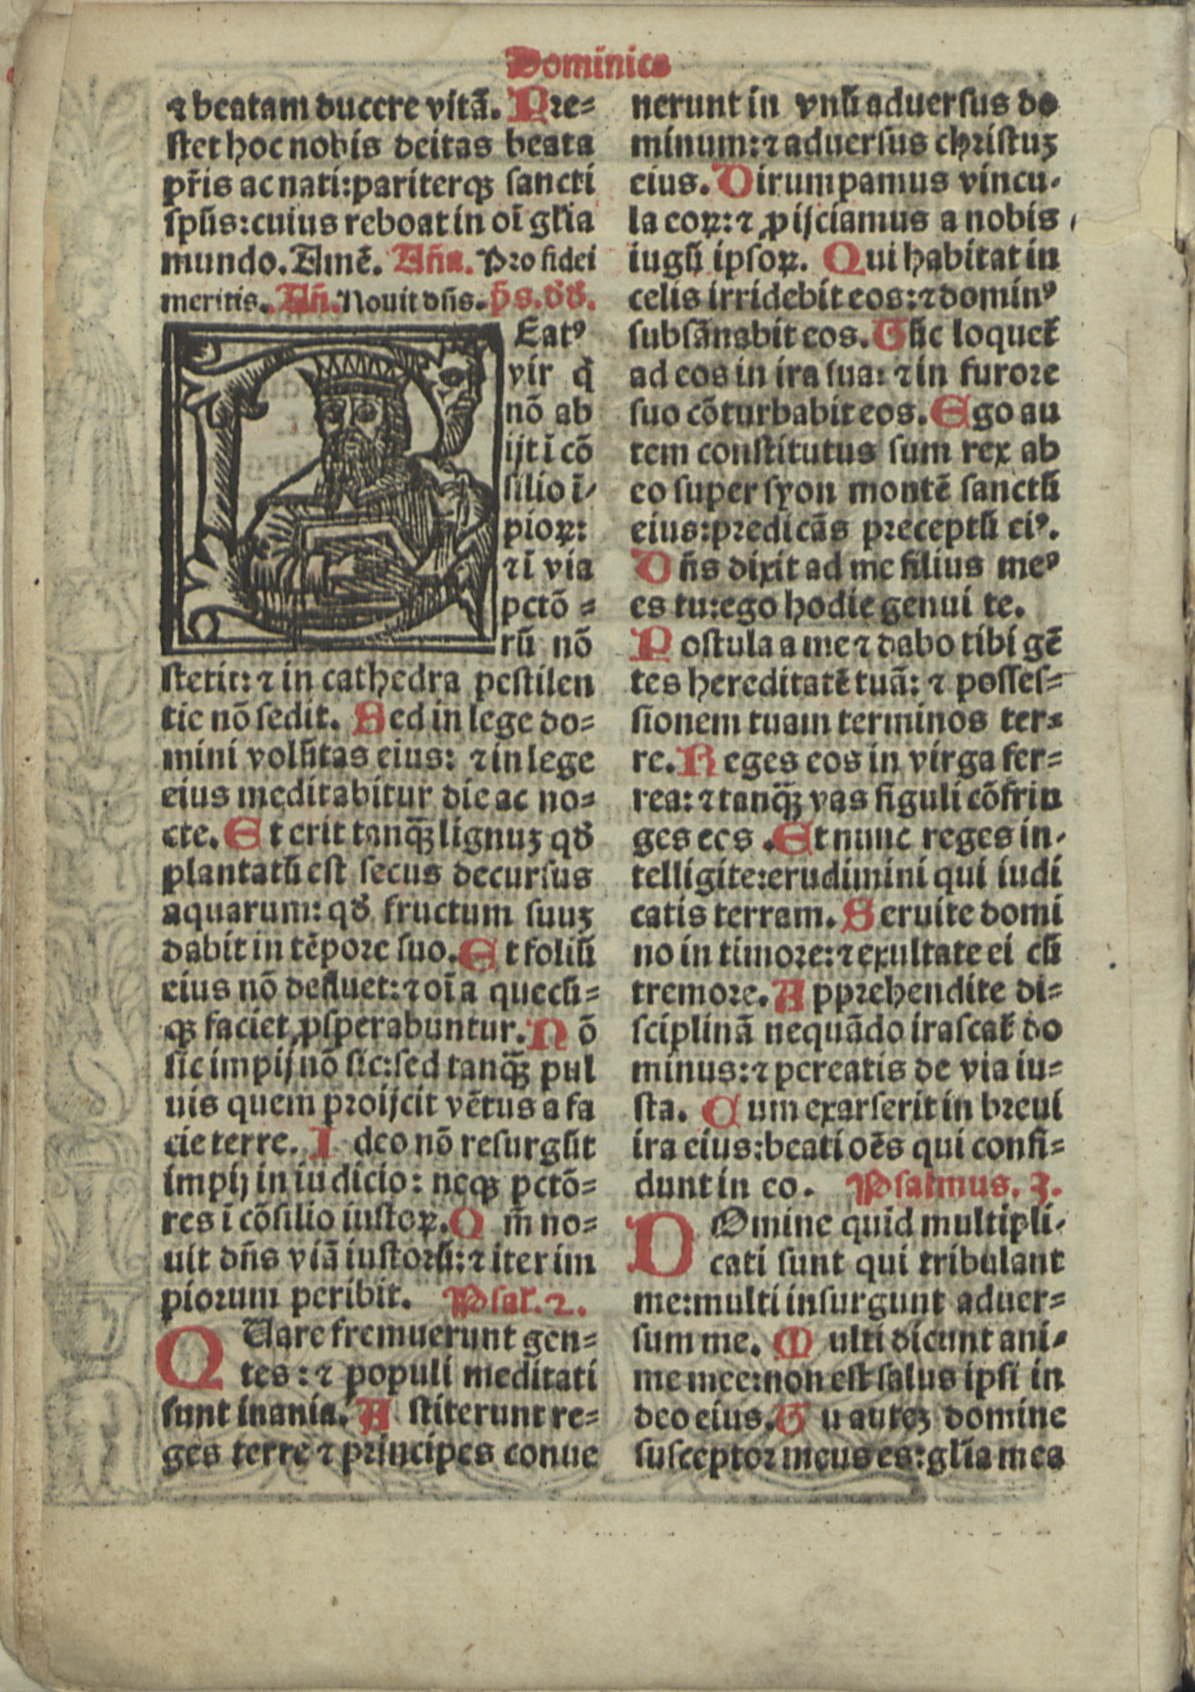 Dominica
⁊ beatam ducere vitã. Pre=
stet hoc nobis deitas beata
pr̃is ac nati: pariterqꝫ sancti
spũs: cuius reboat in oĩ gl̃ia
mundo. Amẽ. Añа. Pro fidei
meritis. Añ. Nouit dñs. p̃s. dđ.
Eatꝰ
vir q̃
nõ ab
ijt ĩ cõ
silio ĩ/
pioꝝ:
⁊ ĩ via
pctõ =
rũ nõ
stetit: ⁊ in cathedra pestilen
tie nõ sedit. Sed in lege do=
mini volũtas eius: ⁊ in lege
eius meditabitur die ac no=
cte. Et erit tanqꝫ̃ lignuꝫ qđ
plantatũ est secus decursus
aquarum: qđ fructum suuꝫ
dabit in tẽpore suo. Et foliũ
eius nõ defluet: ⁊ oĩa quecũ=
qꝫ faciet ꝓsperabuntur. Nõ
sic impij nõ sic: sed tanqꝫ̃ pul
uis quem proijcit vẽtus a fa
cie terre. Ideo nõ resurgũt
impij in iudicio: neqꝫ pctõ=
res ĩ cõsilio iustoꝝ. Qm̃ no=
uit dñs viã iustorũ: ⁊ iter im
piorum peribit. Psal. 2.
QUare fremuerunt gen=
tes: ⁊ populi meditati
sunt inania. Astiterunt re=
ges terre ⁊ principes conue
nerunt in vnũ aduersus do
minum: ⁊ aduersus christuꝫ
eius. Dirumpamus vincu/
la eoꝝ: ⁊ ꝓijciamus a nobis
iugũ ipsoꝝ. Qui habitat in
celis irridebit eos: ⁊ dominꝰ
subsãnabit eos. Tũc loquet̃
ad eos in ira sua: ⁊ in furore
suo cõturbabit eos. Ego au
tem constitutus sum rex ab
eo super syon montẽ sanctũ
eius: predicãs preceptũ eiꝰ.
Dñs dixit ad me filius meꝰ
es tu: ego hodie genui te.
Postula a me ⁊ dabo tibi gẽ
tes hereditatẽ tuã: ⁊ posses=
sionem tuam terminos ter=
re. Reges eos in virga fer=
rea: ⁊ tanqꝫ̃ vas figuli cõfrin
ges eos. Et nunc reges in/
telligite: erudimini qui iudi
catis terram. Seruite domi
no in timore: ⁊ exultate ei cũ
tremore. Apprehendite di=
sciplinã nequãdo irascat̃ do
minus: ⁊ pereatis de via iu=
sta. Cum exarserit in breui
ira eius: beati oẽs qui confi=
dunt in eo. Psalmus. 3.
DOmine quid multipli/
cati sunt qui tribulant
me: multi insurgunt aduer=
sum me. Multi dicunt ani/
me mee: non est salus ipsi in
deo eius. Tu auteꝫ domine
susceptor meus es: gl̃ia mea